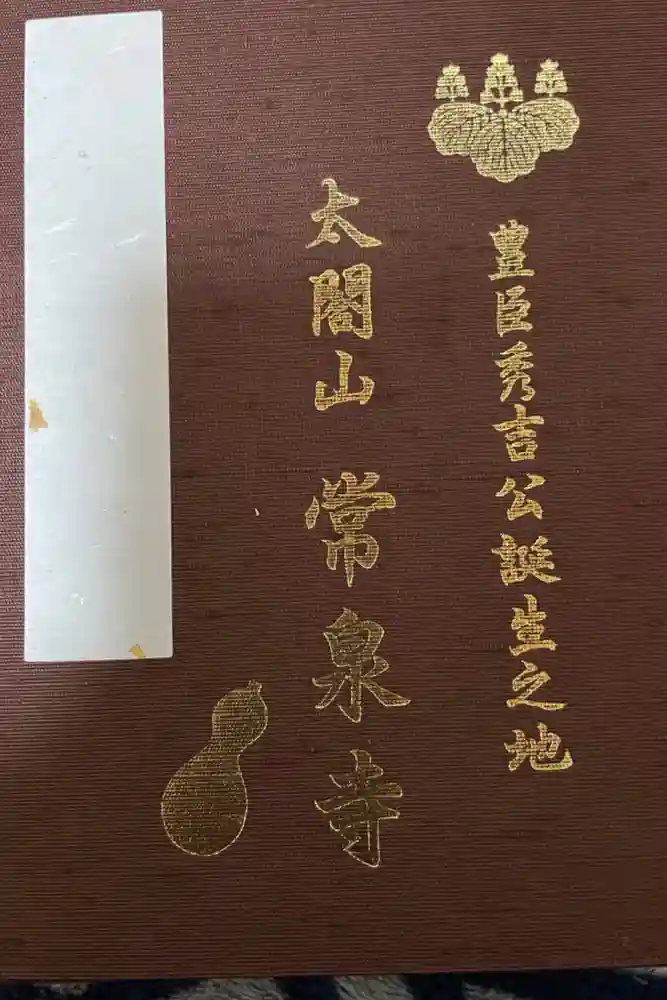 豊臣秀吉公誕生之地
太閤山 常泉寺